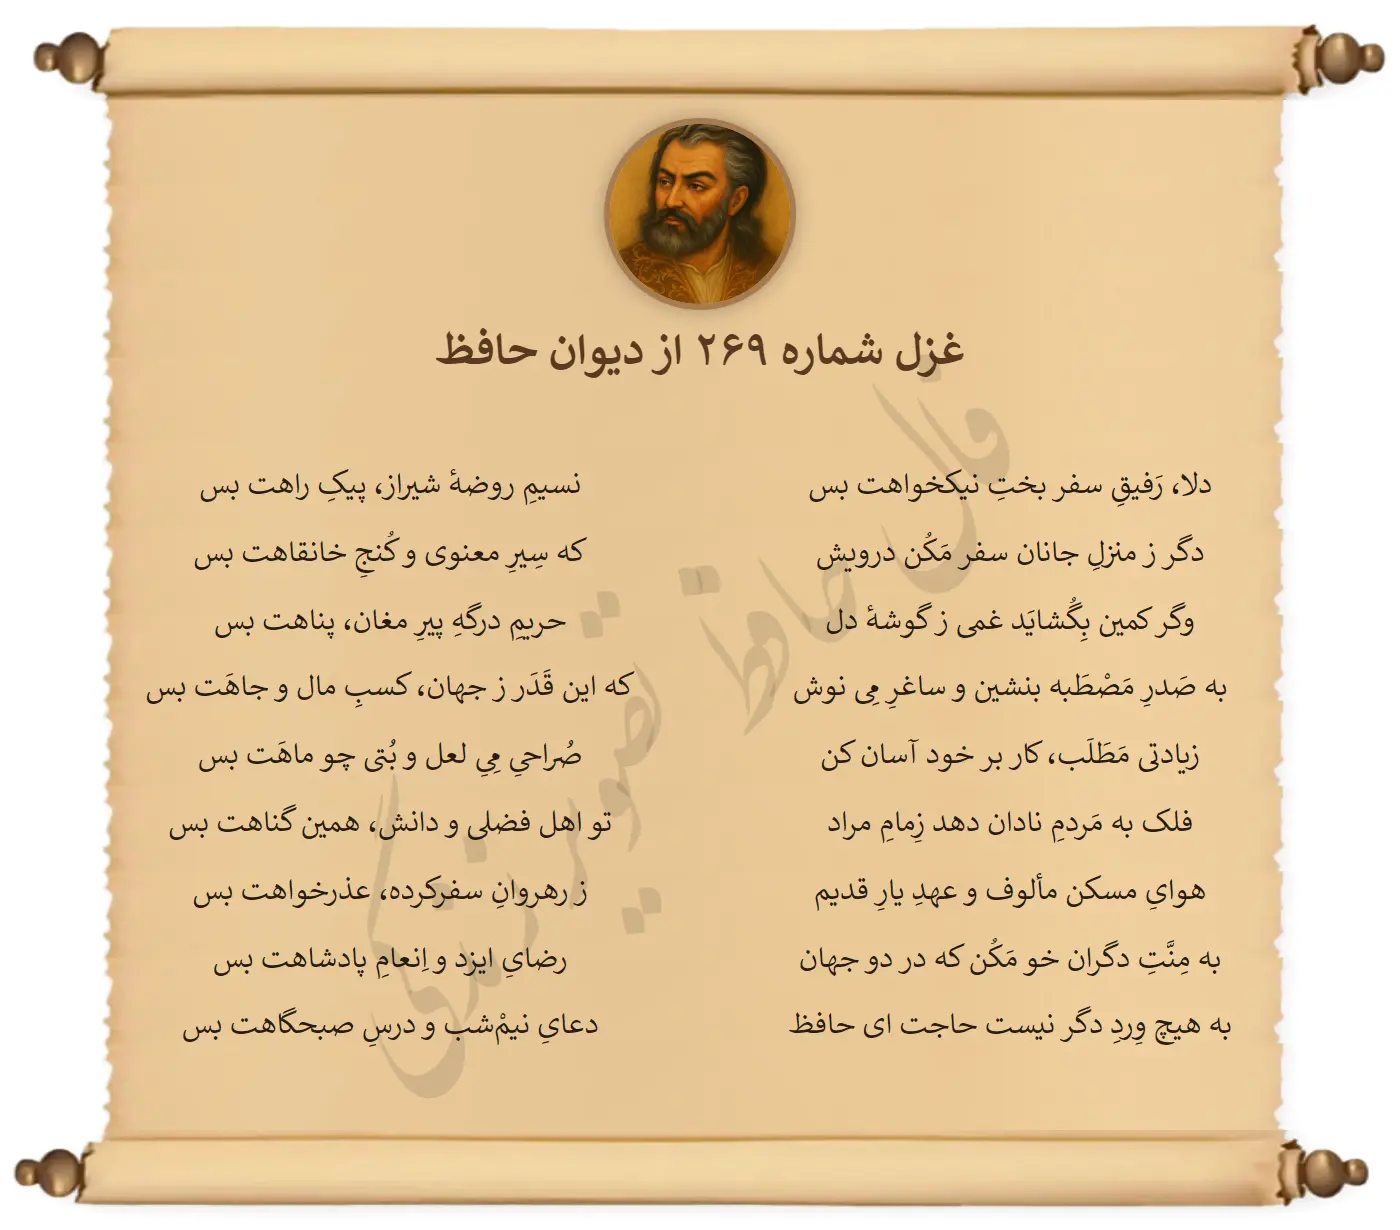 غزل شماره ۲۶۹ از دیوان حافظ
دلا، رَفیقِ سفر بختِ نیکخواهت بس
نسیمِ روضهٔ شیراز، پیکِ راهت بس
دگر ز منزلِ جانان سفر مَکُن درویش
که سِیرِ معنوی و کُنجِ خانقاهت بس
وگر کمین بِگُشایَد غمی ز گوشهٔ دل
حریمِ درگهِ پیرِ مغان، پناهت بس
به صَدرِ مَصْطَبه بنشین و ساغرِ مِی نوش
که این قَدَر ز جهان، کسبِ مال و جاهَت بس
زیادتی مَطَلَب، کار بر خود آسان کن
صُراحیِ مِیِ لعل و بُتی چو ماهَت بس
فلک به مَردمِ نادان دهد زِمامِ مراد
تو اهل فضلی و دانش، همین گناهت بس
هوایِ مسکن مألوف و عهدِ یارِ قدیم
ز رهروانِ سفرکرده، عذرخواهت بس
به مِنَّتِ دگران خو مَکُن که در دو جهان
رضایِ ایزد و اِنعامِ پادشاهت بس
به هیچ وِردِ دگر نیست حاجت ای حافظ
دعایِ نیمْ‌شب و درسِ صبحگاهت بس
فال حافظ تصویر زندگی